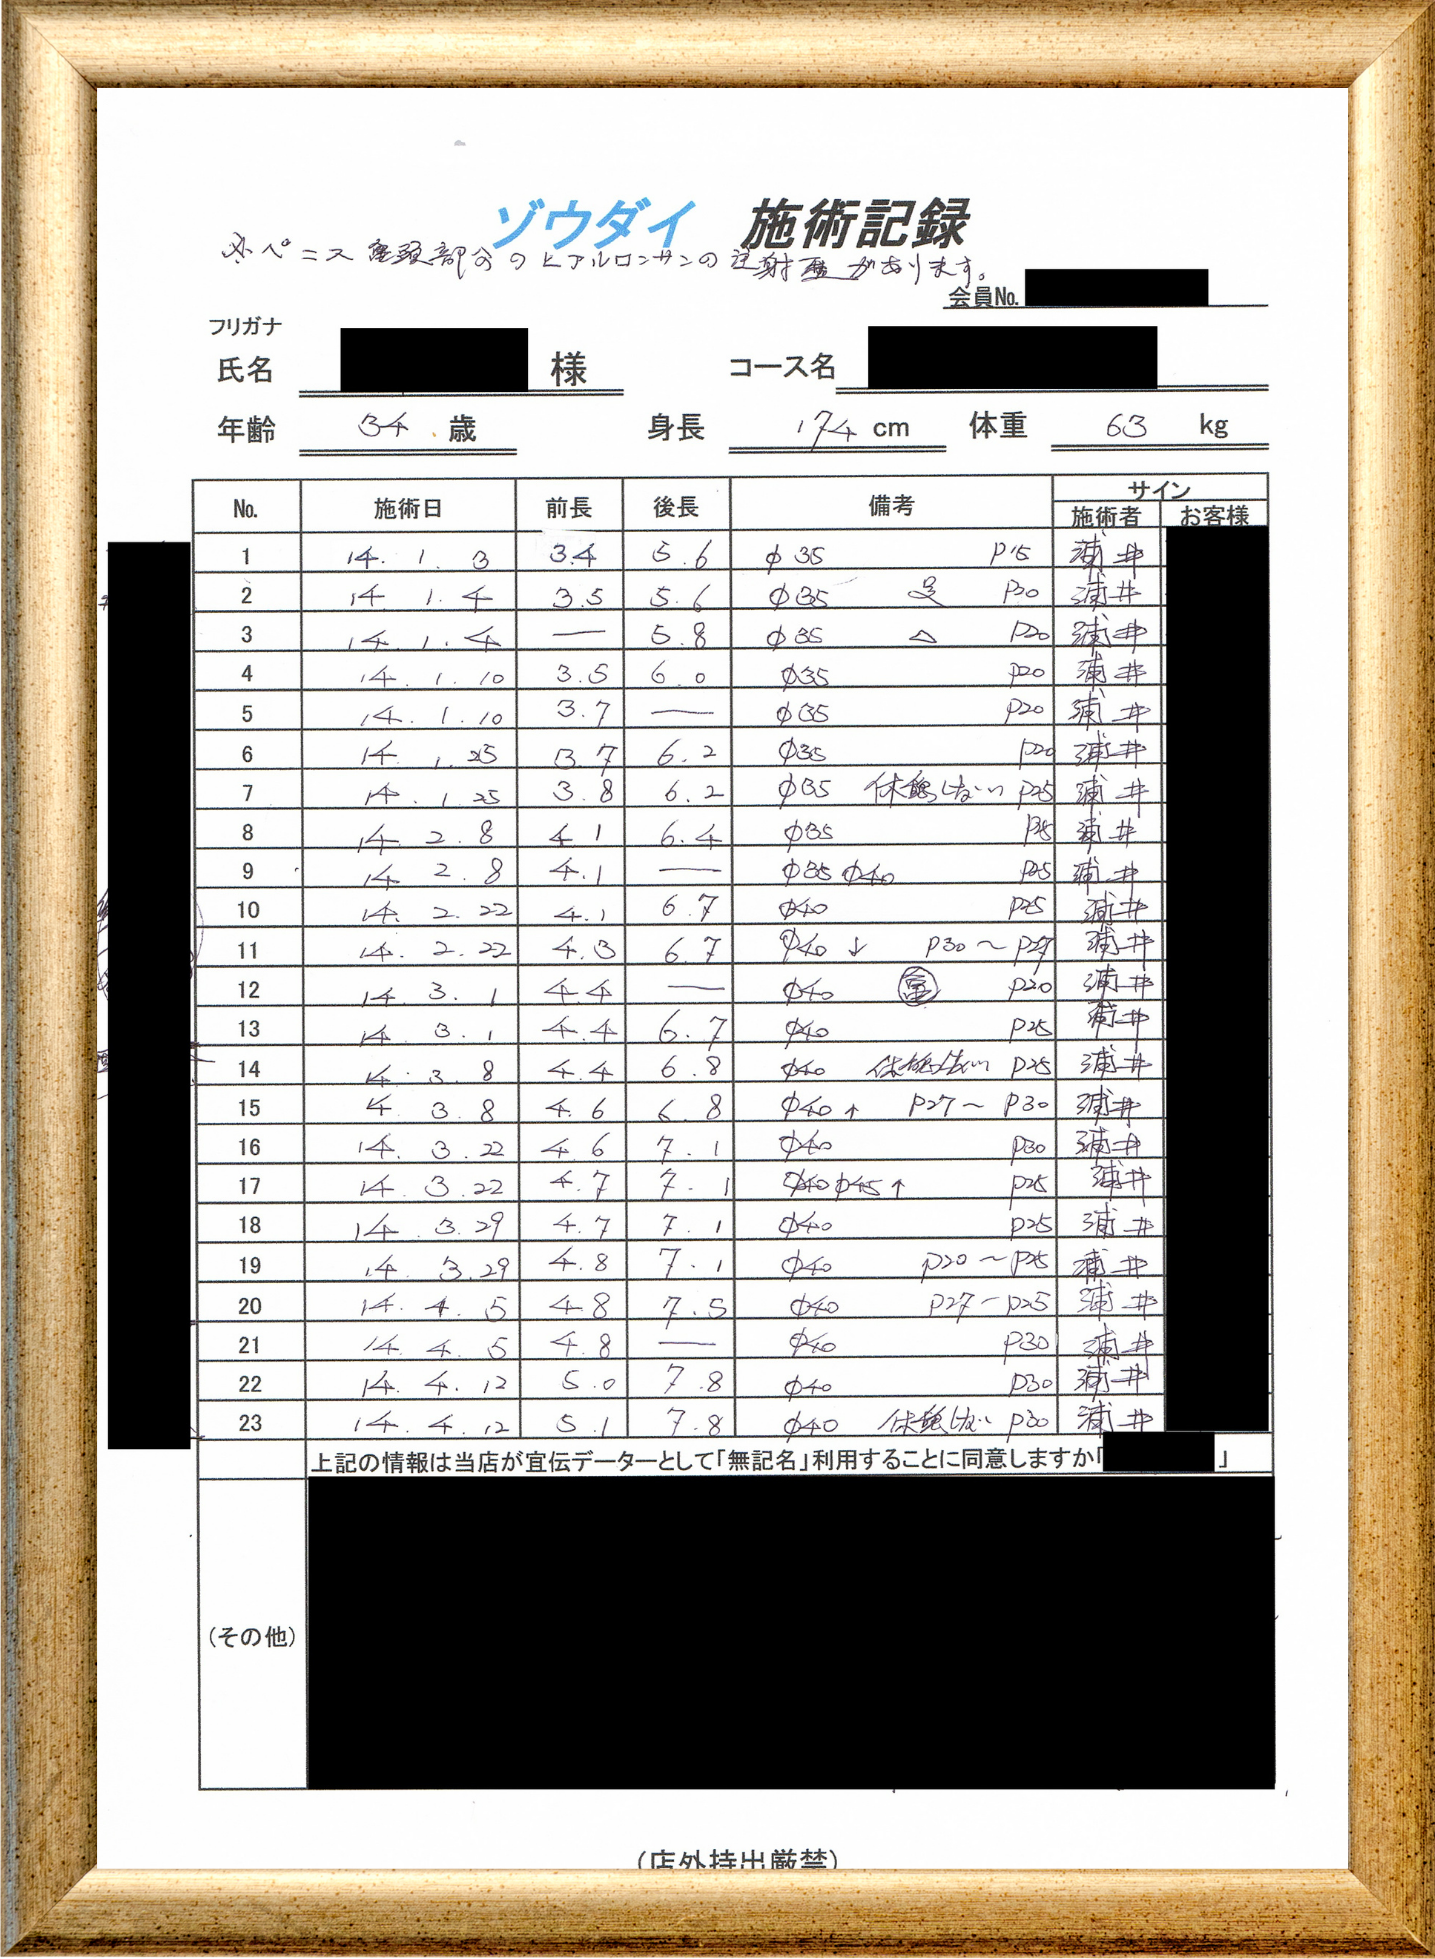 ゾウダイ 施術記録
※ペニス亀頭部分のヒアルロンサンの注射歴があります。
会員No.
フリガナ
氏名 様 コース名
年齢 34 歳 身長 174 cm 体重 63 kg
No. 施術日 前長 後長 備考 サイン
施術者 お客様
1 14. 1. 3 3.4 5.6 φ35 P15 浦井
2 14. 1. 4 3.5 5.6 φ35 P20 浦井
3 14. 1. 4 — 5.8 φ35 △ P20 浦井
4 14. 1. 10 3.5 6.0 φ35 P20 浦井
5 14. 1. 10 3.7 — φ35 P20 浦井
6 14. 1. 25 3.7 6.2 φ35 P20 浦井
7 14. 1. 25 3.8 6.2 φ35 休憩しない P25 浦井
8 14 2. 8 4.1 6.4 φ35 浦井
9 14 2. 8 4.1 — φ35 φ40 P25 浦井
10 14. 2. 22 4.1 6.7 φ40 P25 浦井
11 14. 2. 22 4.3 6.7 φ40 ↓ P30〜P27 浦井
12 14. 3. 1 4.4 — φ40 P20 浦井
13 14. 3. 1 4.4 6.7 φ40 P25 浦井
14 14. 3. 8 4.4 6.8 φ40 休憩しない P25 浦井
15 4. 3. 8 4.6 6.8 φ40 ↑ P27〜P30 浦井
16 14. 3. 22 4.6 7.1 φ40 P30 浦井
17 14. 3. 22 4.7 7.1 φ40 φ45 ↑ P25 浦井
18 14 3. 29 4.7 7.1 φ40 P25 浦井
19 14. 3. 29 4.8 7.1 φ40 P20〜P25 浦井
20 14. 4. 5 4.8 7.5 φ40 P27〜P25 浦井
21 14. 4. 5 4.8 — φ40 P30 浦井
22 14. 4. 12 5.0 7.8 φ40 P30 浦井
23 14. 4. 12 5.1 7.8 φ40 休憩しない P30 浦井
上記の情報は当店が宣伝データーとして「無記名」利用することに同意しますか「 」
(その他)
(店外持出厳禁)